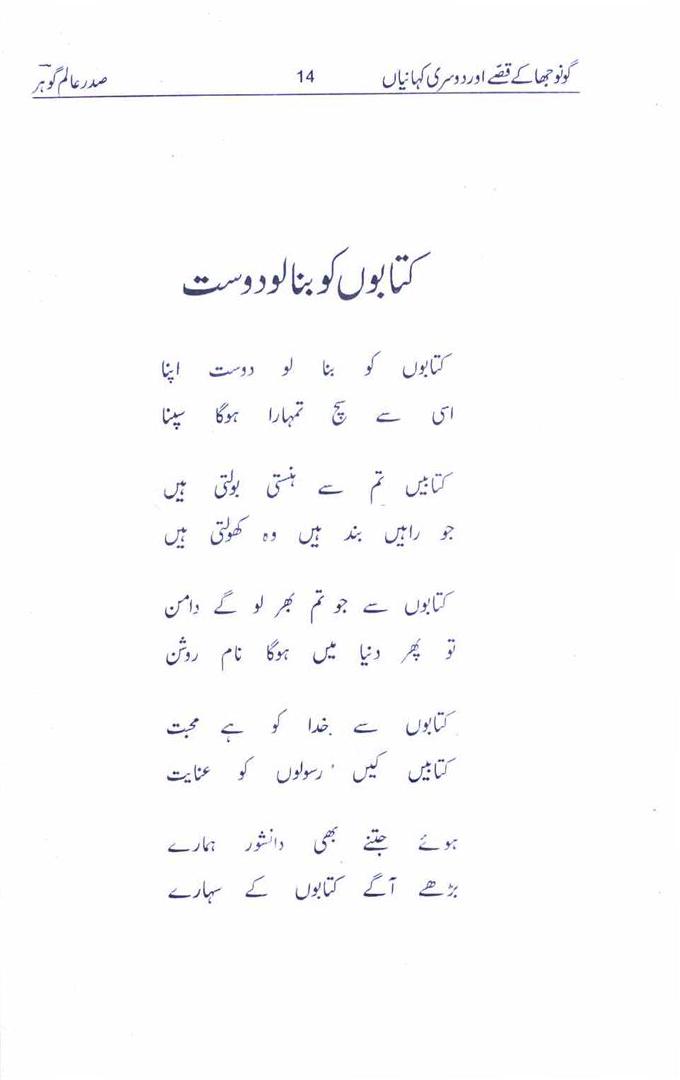 گونو جھا کے قصّے اور دوسری کہانیاں 14 صدر عالم گوہر
کتابوں کو بنا لو دوست
کتابوں کو بنا لو دوست اپنا
اسی سے سچ تمہارا ہوگا سپنا
کتابیں تم سے ہنستی بولتی ہیں
جو راہیں بند ہیں وہ کھولتی ہیں
کتابوں سے جو تم بھر لو گے دامن
تو پھر دنیا میں ہوگا نام روشن
کتابوں سے خدا کو ہے محبت
کتابیں کیں رسولوں کو عنایت
ہوئے جتنے بھی دانشور ہمارے
بڑھے آگے کتابوں کے سہارے